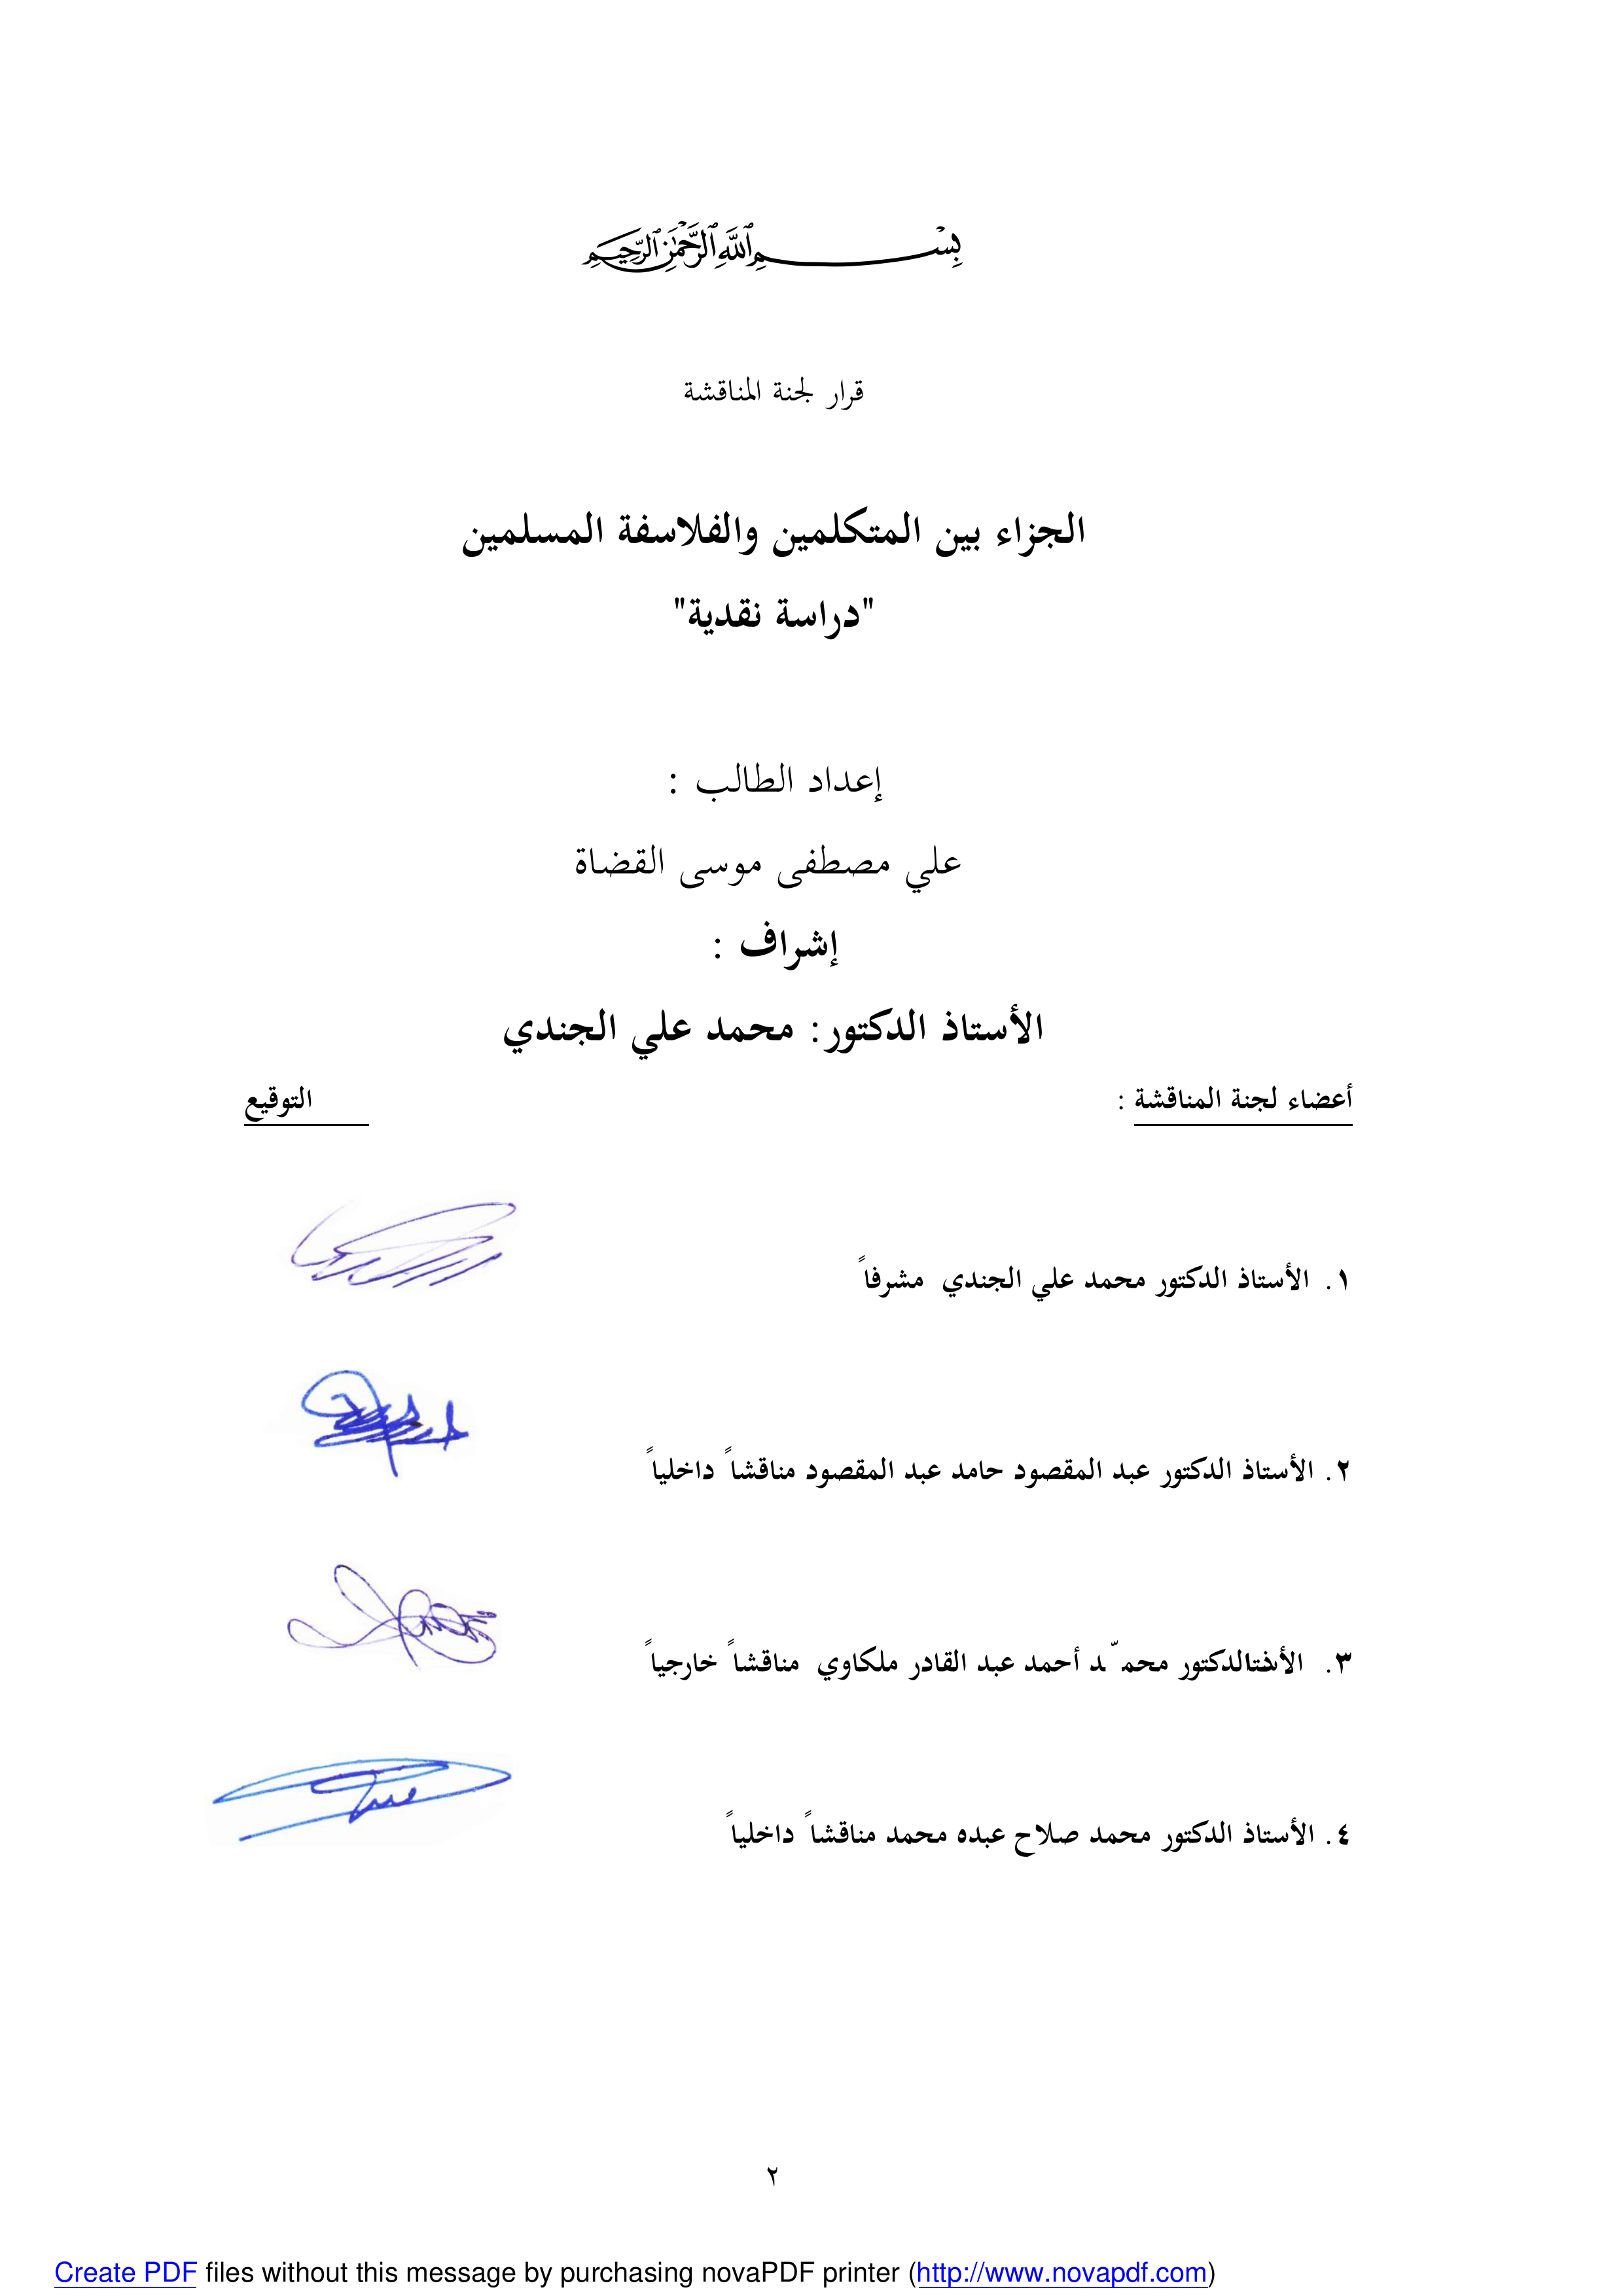 بِسْمِ ٱللَّهِ ٱلرَّحْمَٰنِ ٱلرَّحِيمِ
قرار لجنة المناقشة
الجزاء بين المتكلمين والفلاسفة المسلمين
"دراسة نقدية"
إعداد الطالب :
علي مصطفى موسى القضاة
إشراف :
الأستاذ الدكتور: محمد علي الجندي
أعضاء لجنة المناقشة : التوقيع
١. الأستاذ الدكتور محمد علي الجندي مشرفاً
٢. الأستاذ الدكتور عبد المقصود حامد عبد المقصود مناقشاً داخلياً
٣. الدكتور محمّد أحمد عبد القادر ملكاوي مناقشاً خارجياً
٤. الأستاذ الدكتور محمد صلاح عبده محمد مناقشاً داخلياً
٢
Create PDF files without this message by purchasing novaPDF printer (http://www.novapdf.com)